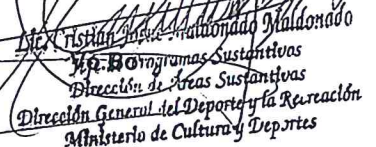 Lic. Cristian Josué Maldonado Maldonado
Vo.Bo. Programas Sustantivos
Dirección de Áreas Sustantivas
Dirección General del Deporte y la Recreación
Ministerio de Cultura y Deportes